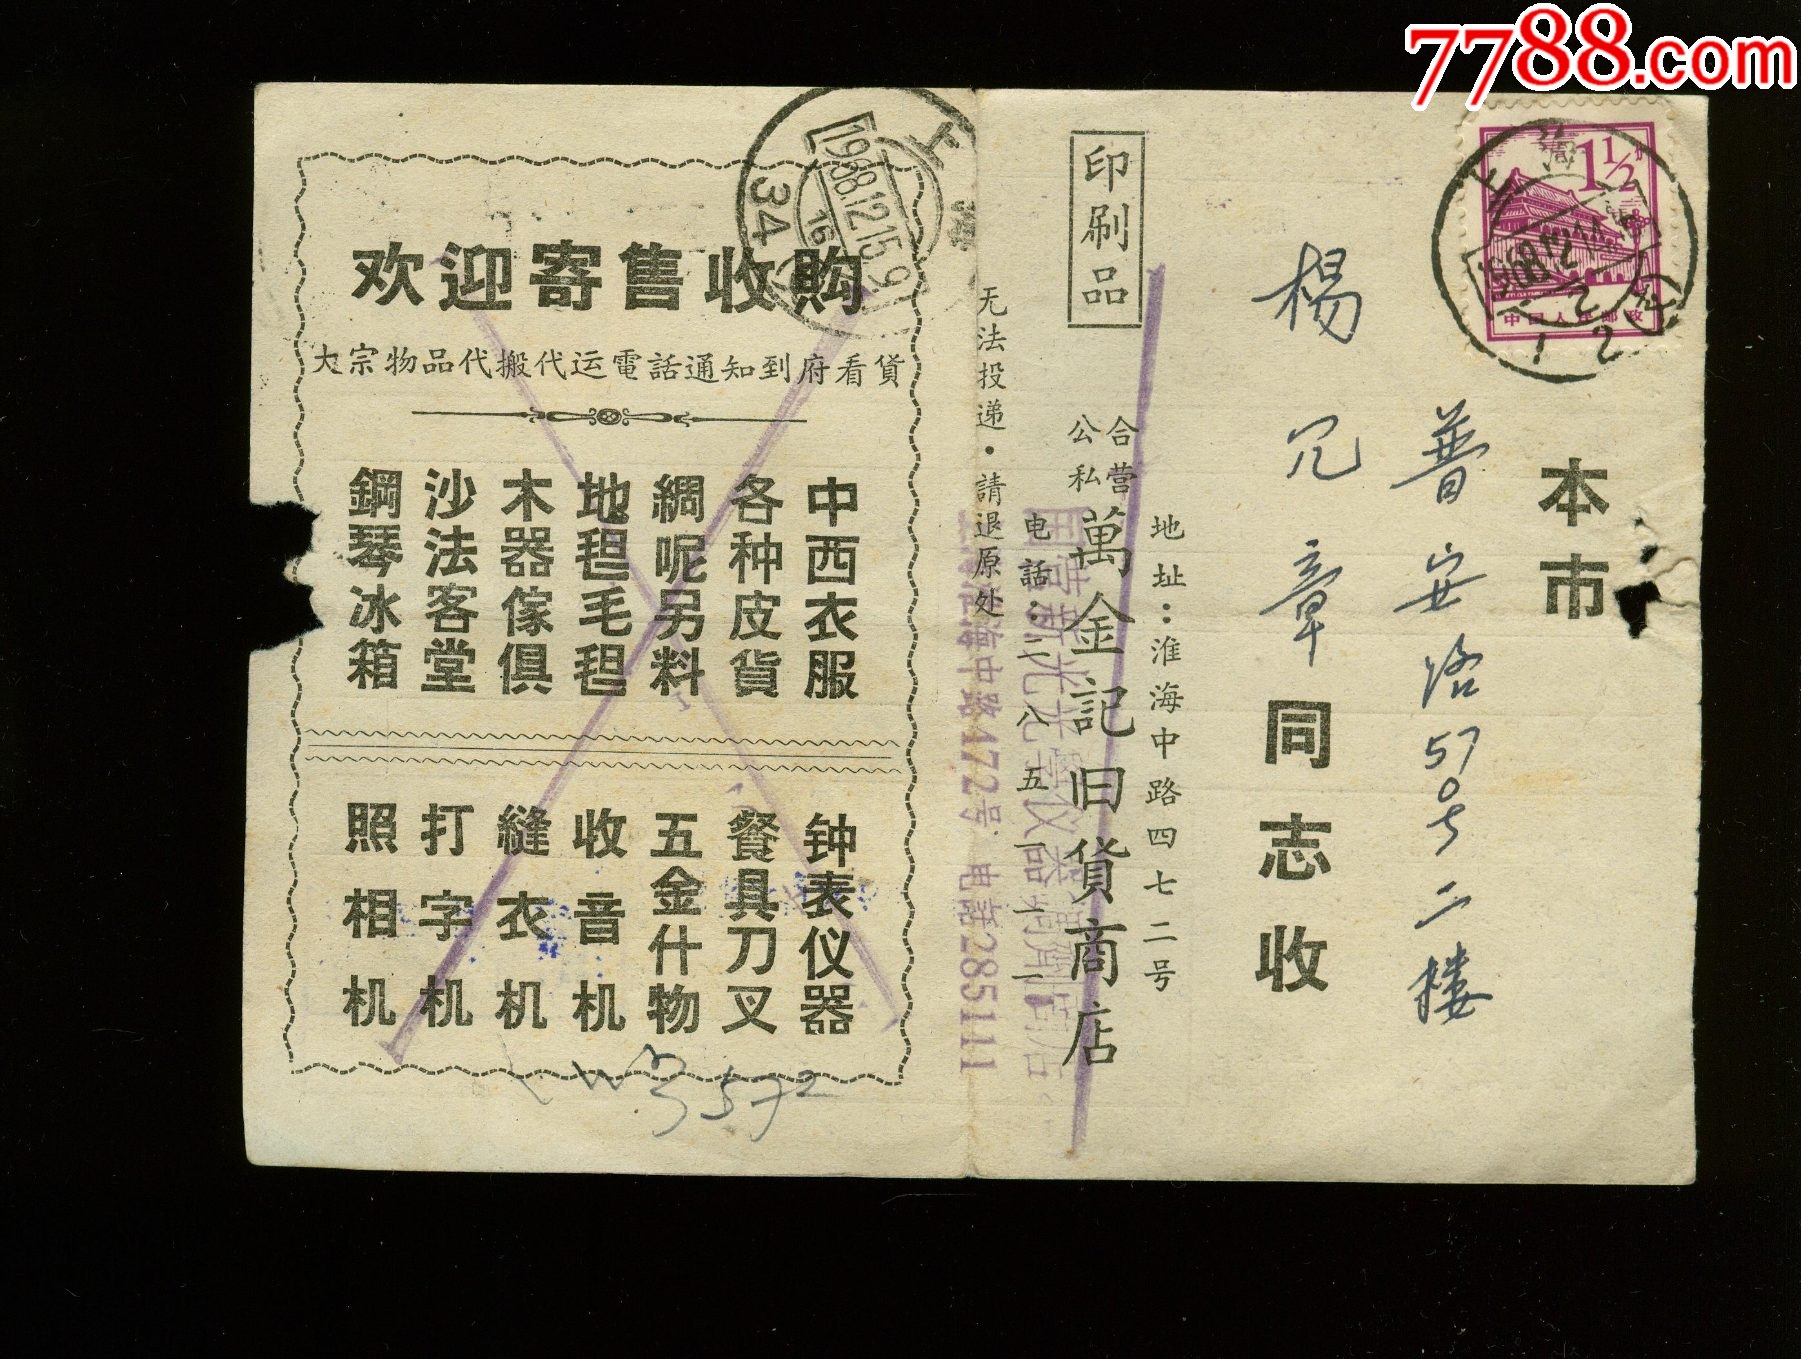 7788.com
本市
普安路57号二楼
楊冗章同志收
印刷品
地址：淮海中路四七二号
公私合营
萬金記旧貨商店
电話：二八五一一一
无法投递・請退原处
1½
中国人民邮政
上海
1968.12.14
上海
1968.12.15.9
16
34
淮海中路472号 电話285111
欢迎寄售收購
大宗物品代搬代运電話通知到府看貨
中西衣服
各种皮貨
綢呢另料
地毯毛毯
木器傢俱
沙法客堂
鋼琴冰箱
钟表仪器
餐具刀叉
五金什物
收音机
縫衣机
打字机
照相机
3572